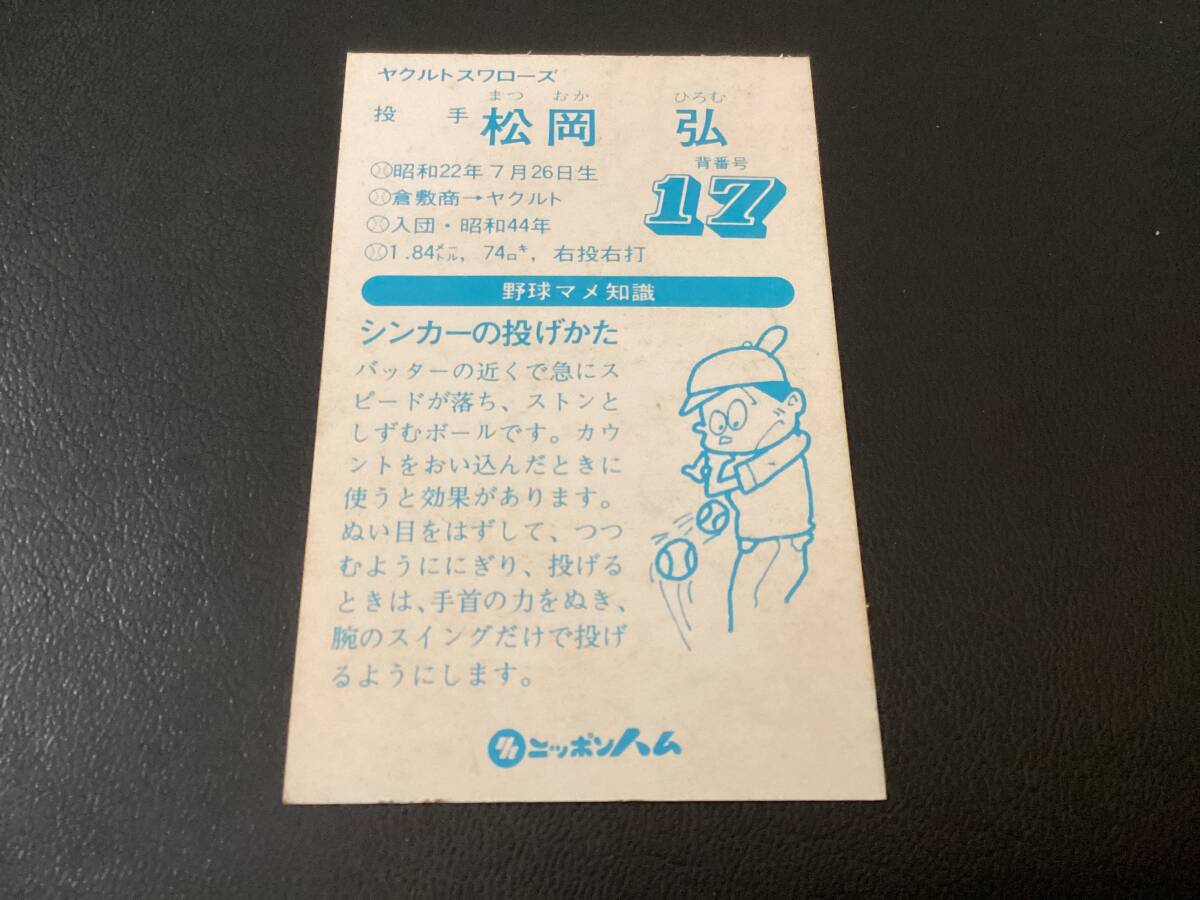 ヤクルトスワローズ
まつ おか ひろむ
投 手 松岡 弘
背番号
17
昭和22年7月26日生
倉敷商→ヤクルト
入団・昭和44年
1.84メートル, 74キロ, 右投右打
野球マメ知識
シンカーの投げかた
バッターの近くで急にス
ピードが落ち、ストンと
しずむボールです。カウ
ントをおい込んだときに
使うと効果があります。
ぬい目をはずして、つつ
むようににぎり、投げる
ときは、手首の力をぬき、
腕のスイングだけで投げ
るようにします。
ニッポンハム